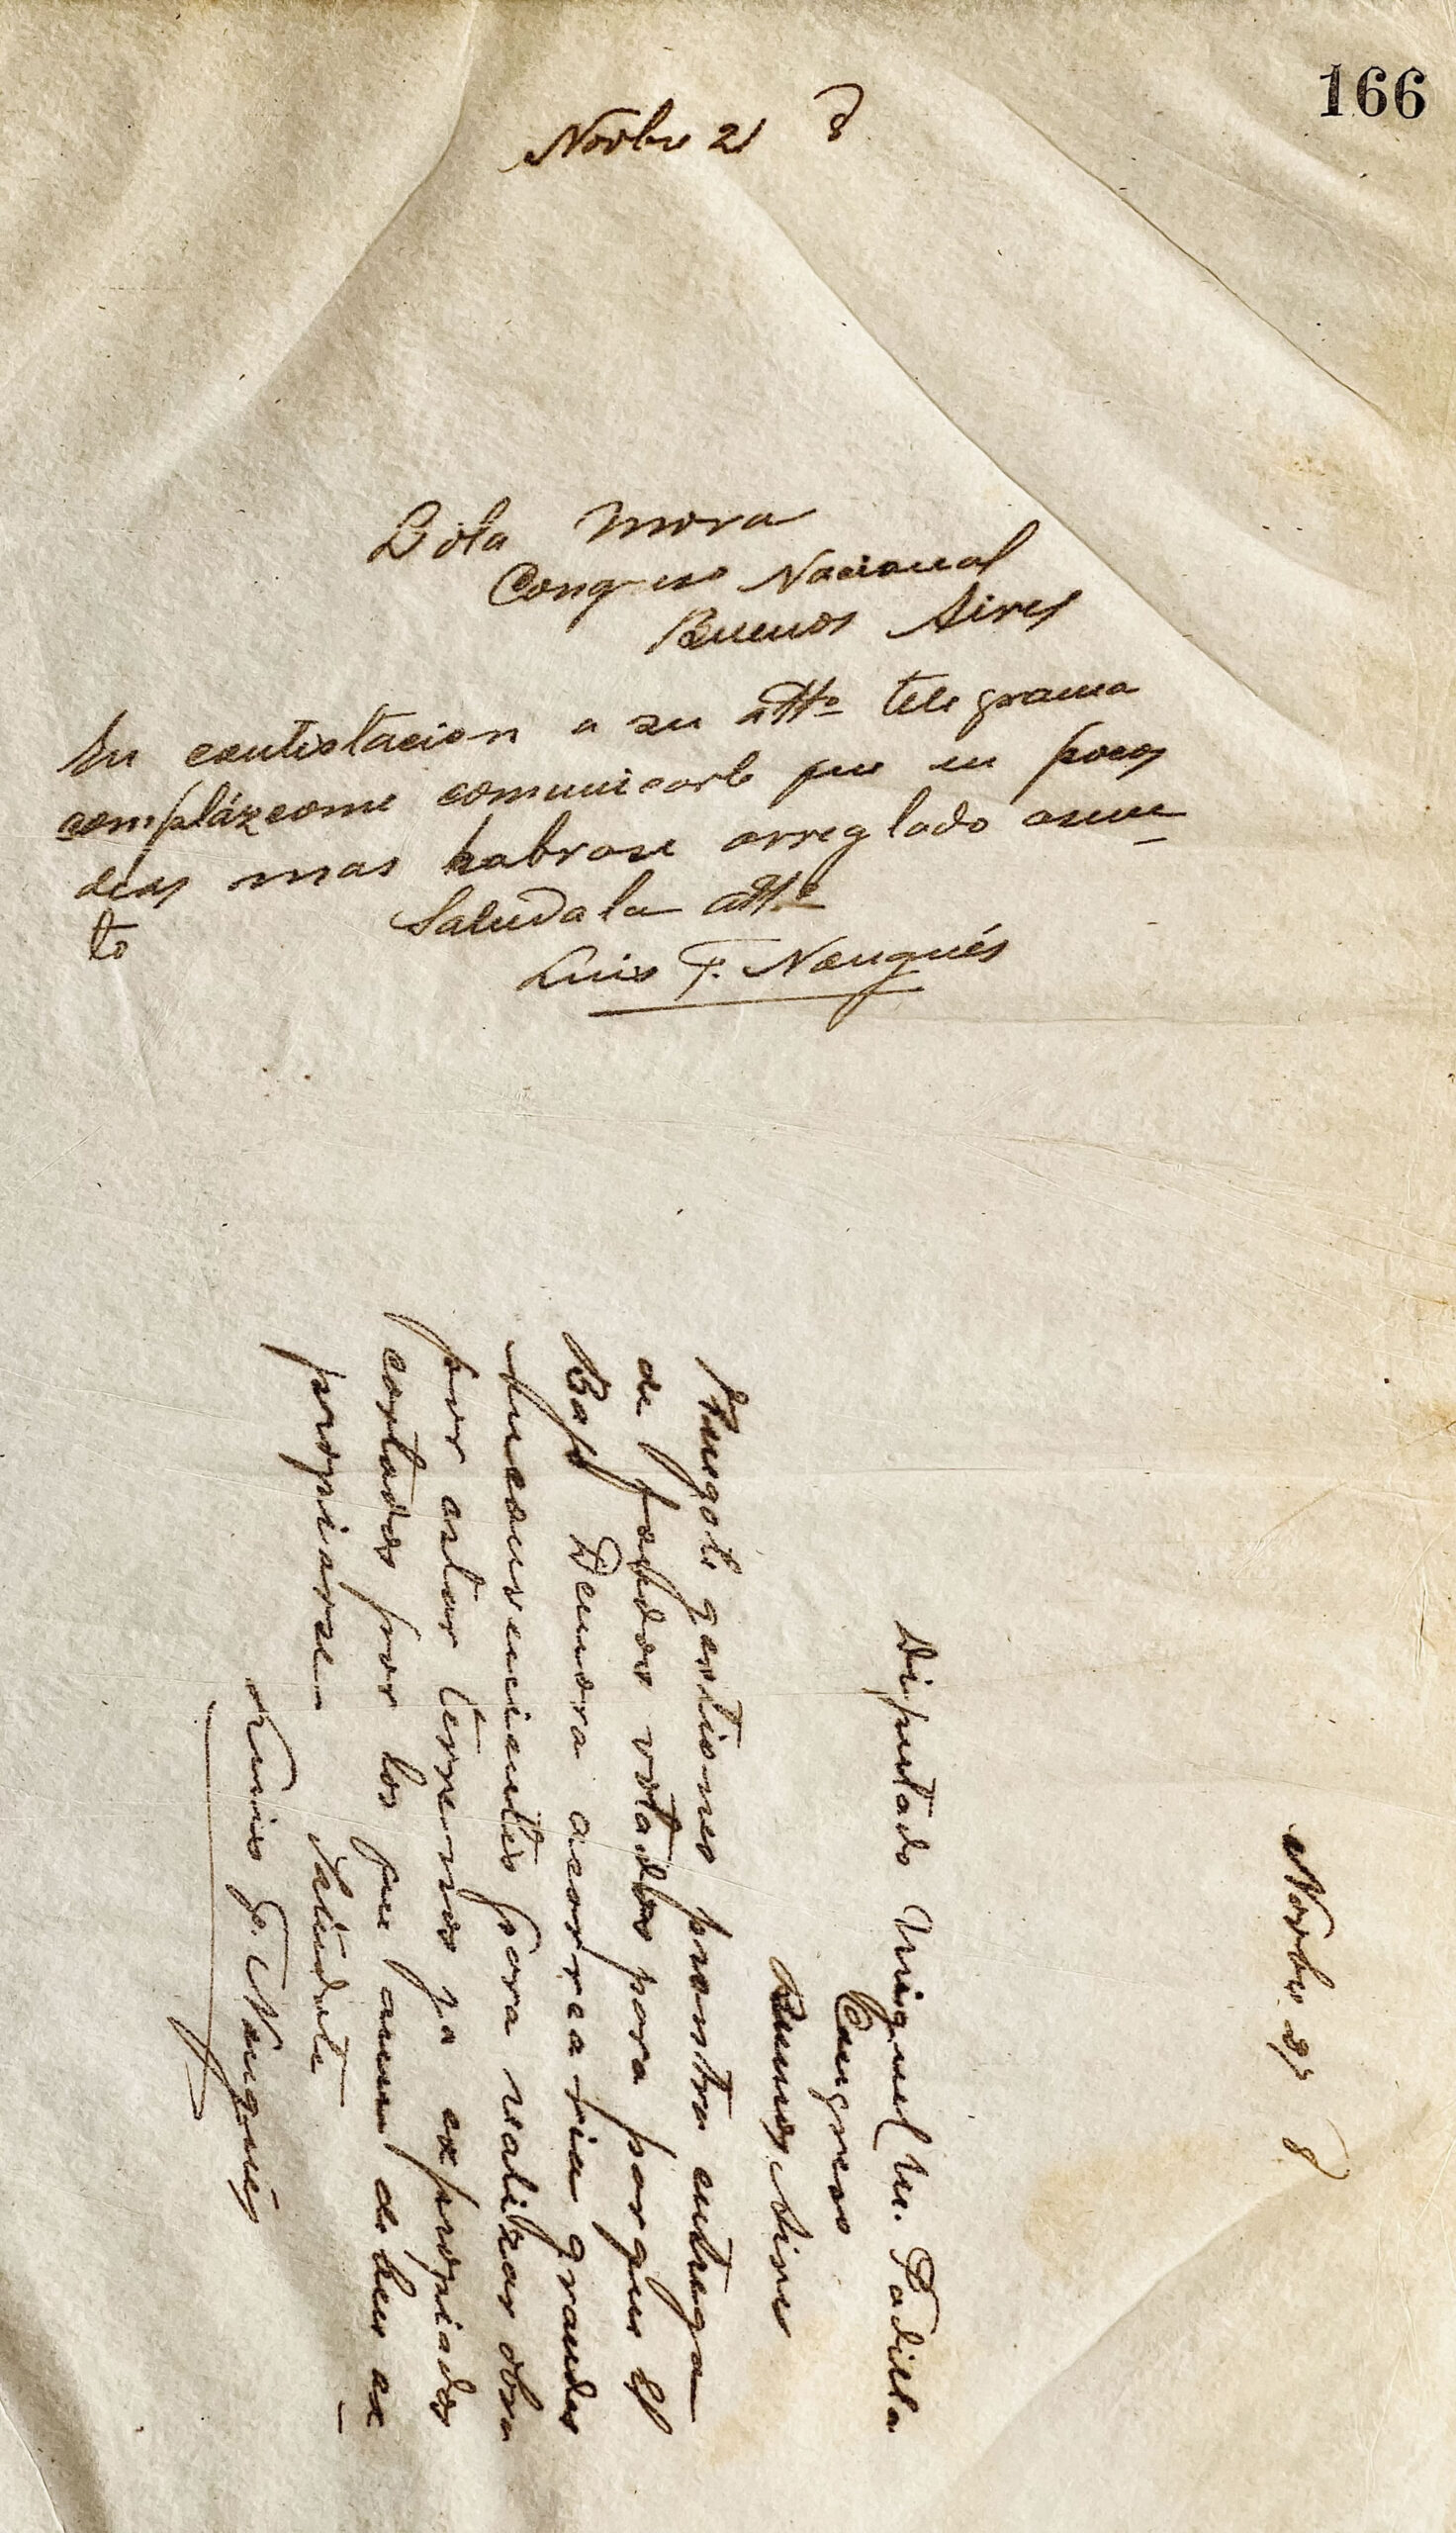 166
Novbre 21 8
Lola Mora
Congreso Nacional
Buenos Aires
En contestacion a su attº telegrama
complázcome comunicarle que en pocos
dias mas habrase arreglado asun
to
Saludala attº
Luis F. Nougués
Novbre 21 8
Diputado Miguel M. Padilla
Congreso
Buenos Aires
Ruegole gestiones pronta entrega
de fondos votados para parque el
Bajo Demora acorrearia grandes
inconvenientes para realizar obra
por estar terrenos ya expropiados
cortados por los que aun deben ex
propiarse Saludote
Luis F. Nougués